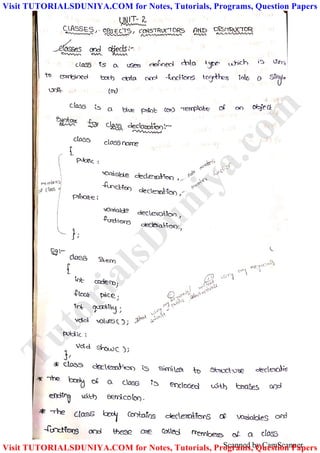 Visit TUTORIALSDUNIYA.COM for Notes, Tutorials, Programs, Question Papers
UNIT-2
CLASSES, OBJECTS, CONSTRUCTORS AND DESTRUCTOR
classes and objects:-
class is a user defined data type which is use
to combined both data and functions together into a single
unit. (or)
class is a blue print (or) template of an object
Syntax for class declaration:-
class class name
{
public:
variable declaration;
function declaration;
members
of class
private:
variable declaration;
functions declaration;
};
Eg:-
class item
{
int codeno;
float price;
int quantity;
void values();
public:
void show();
};
* class declaration is similar to structure declaratio
* The body of a class is enclosed with braces and
ending with semicolon.
* The class body contains declarations of variables and
functions and these are called members of a class
Scanned by CamScanner
TutorialsDuniya.com
Visit TUTORIALSDUNIYA.COM for Notes, Tutorials, Programs, Question Papers